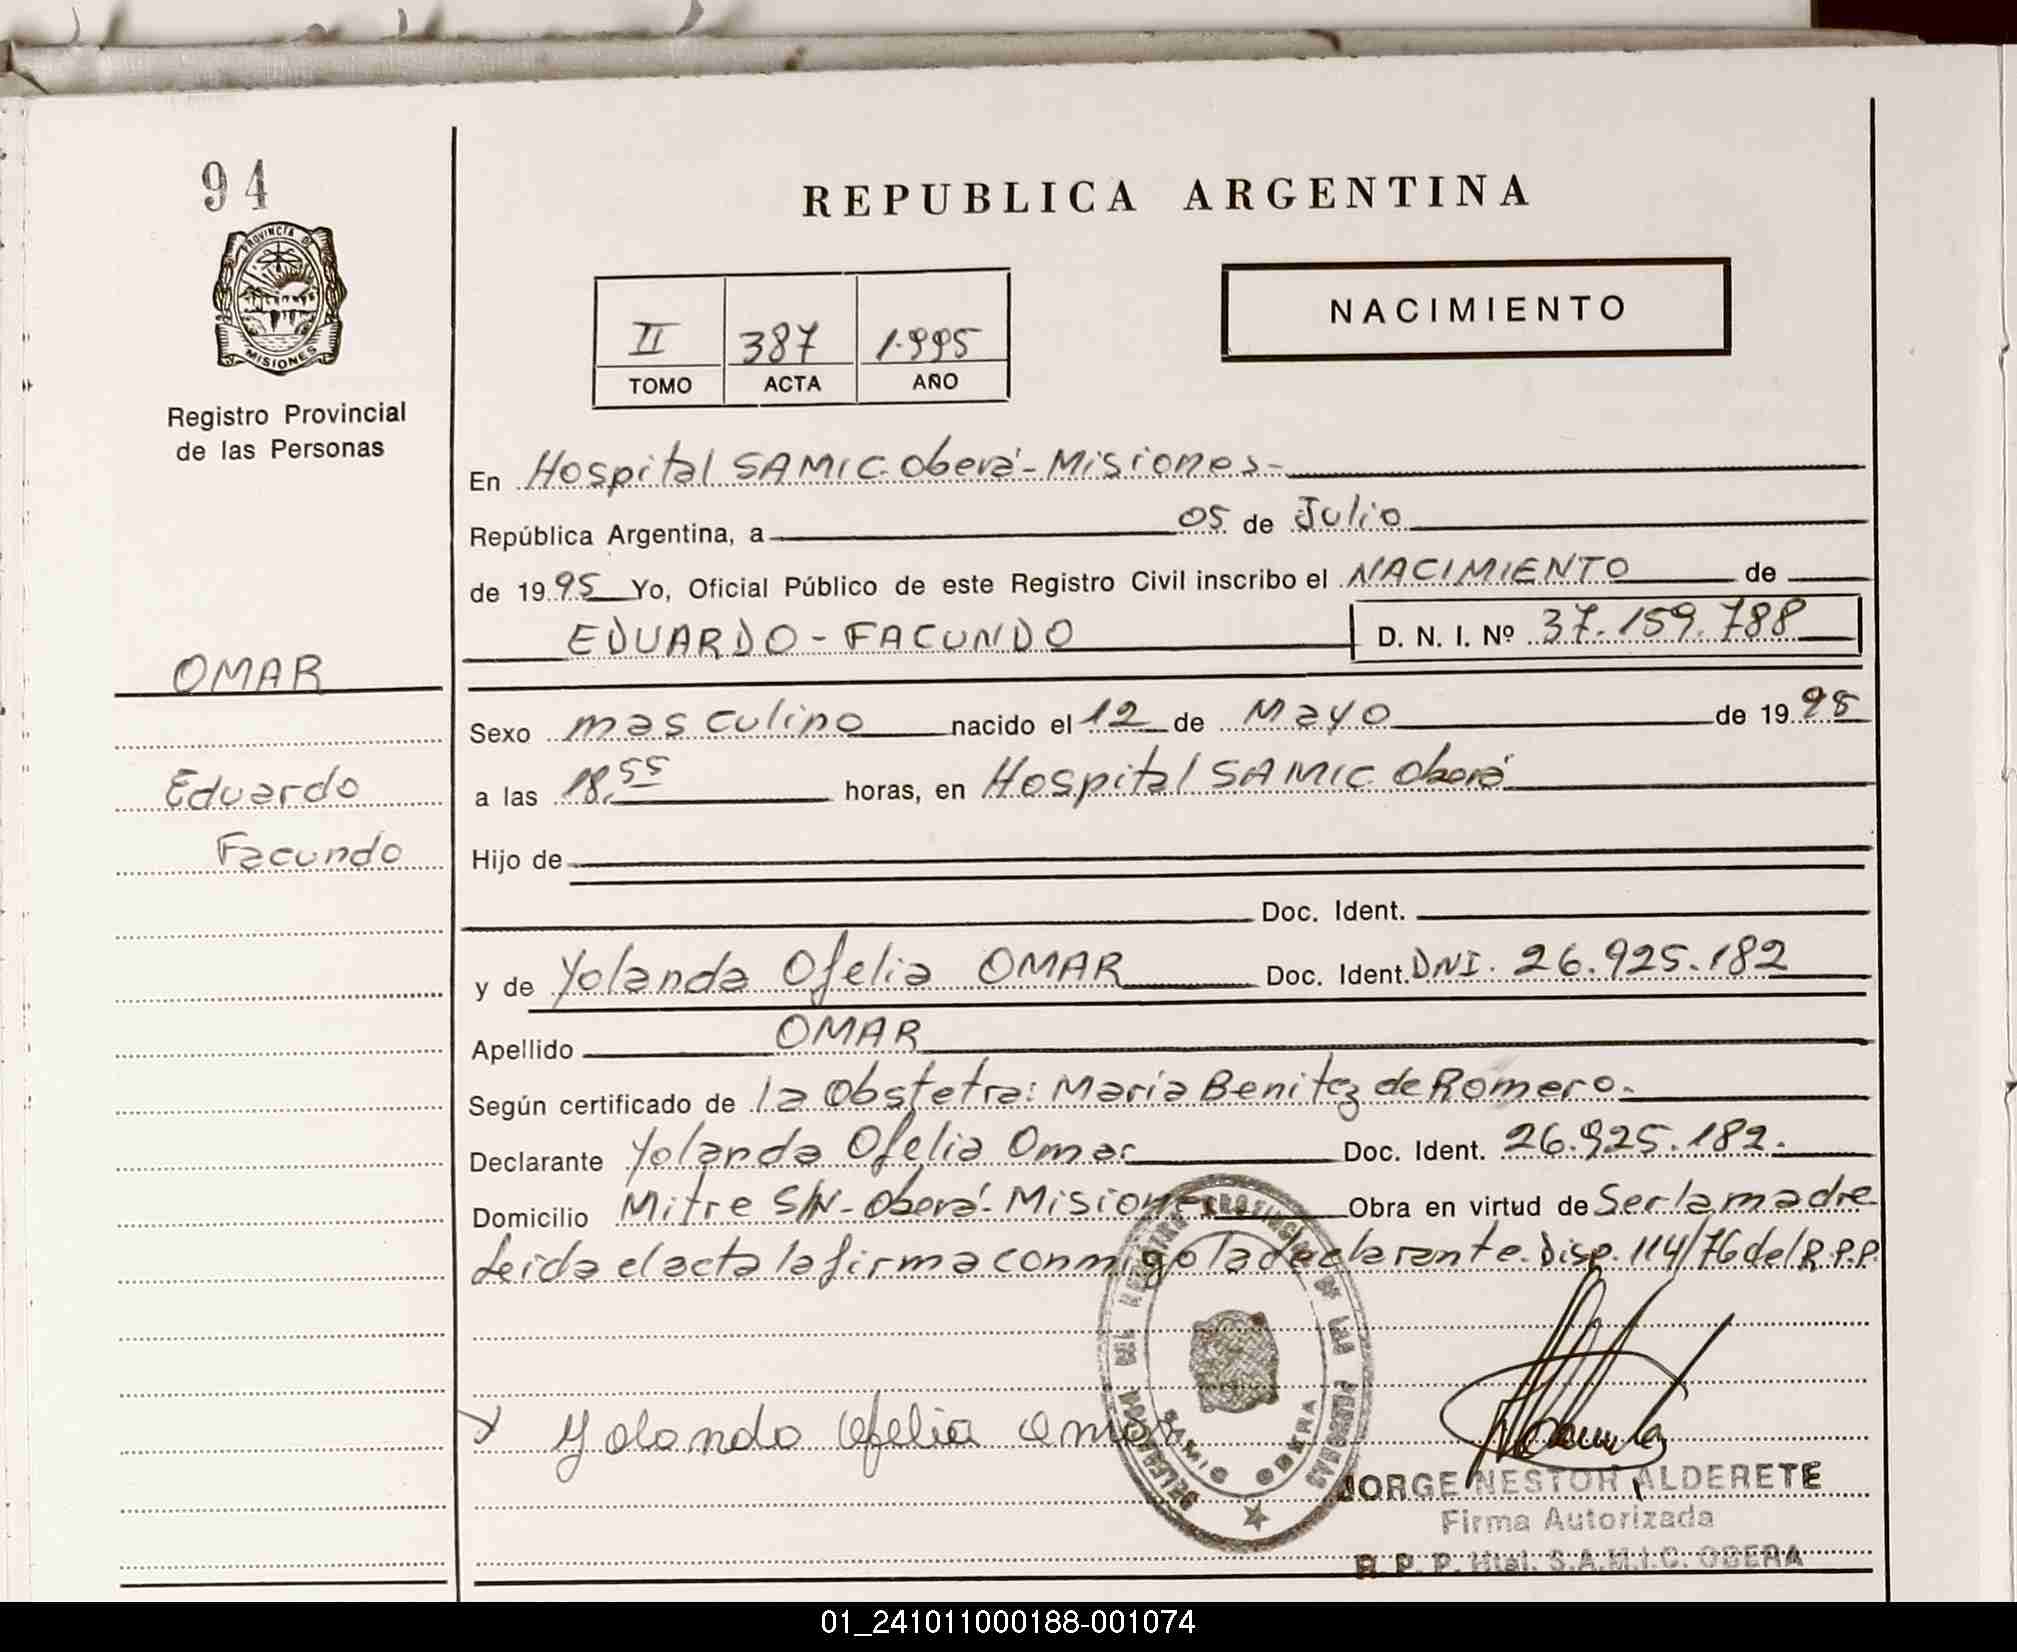 94
PROVINCIA DE
MISIONES
Registro Provincial
de las Personas
OMAR
Eduardo
Facundo
REPUBLICA ARGENTINA
NACIMIENTO
II 387 1.995
TOMO ACTA AÑO
En Hospital SAMIC. Oberá - Misiones -
República Argentina, a 05 de Julio
de 1995 Yo, Oficial Público de este Registro Civil inscribo el NACIMIENTO de
EDUARDO - FACUNDO D. N. I. Nº 37.159.788
Sexo masculino nacido el 12 de Mayo de 1995
a las 18,55 horas, en Hospital SAMIC Oberá
Hijo de
Doc. Ident.
y de Yolanda Ofelia OMAR Doc. Ident. DNI. 26.925.182
Apellido OMAR
Según certificado de la Obstetra: Maria Benitez de Romero.
Declarante Yolanda Ofelia Omar Doc. Ident. 26.925.182.
Domicilio Mitre S/N - Oberá - Misiones Obra en virtud de Ser la madre
Leida el acta la firma conmigo la declarante. Disp. 114/76 del R.P.P.
x Yolanda Ofelia Omar
DELEGACION DEL REGISTRO PROVINCIAL DE LAS PERSONAS
SAMIC OBERA
JORGE NESTOR ALDERETE
Firma Autorizada
R. P. P. Htal. S.A.M.I.C. OBERA
01_241011000188-001074